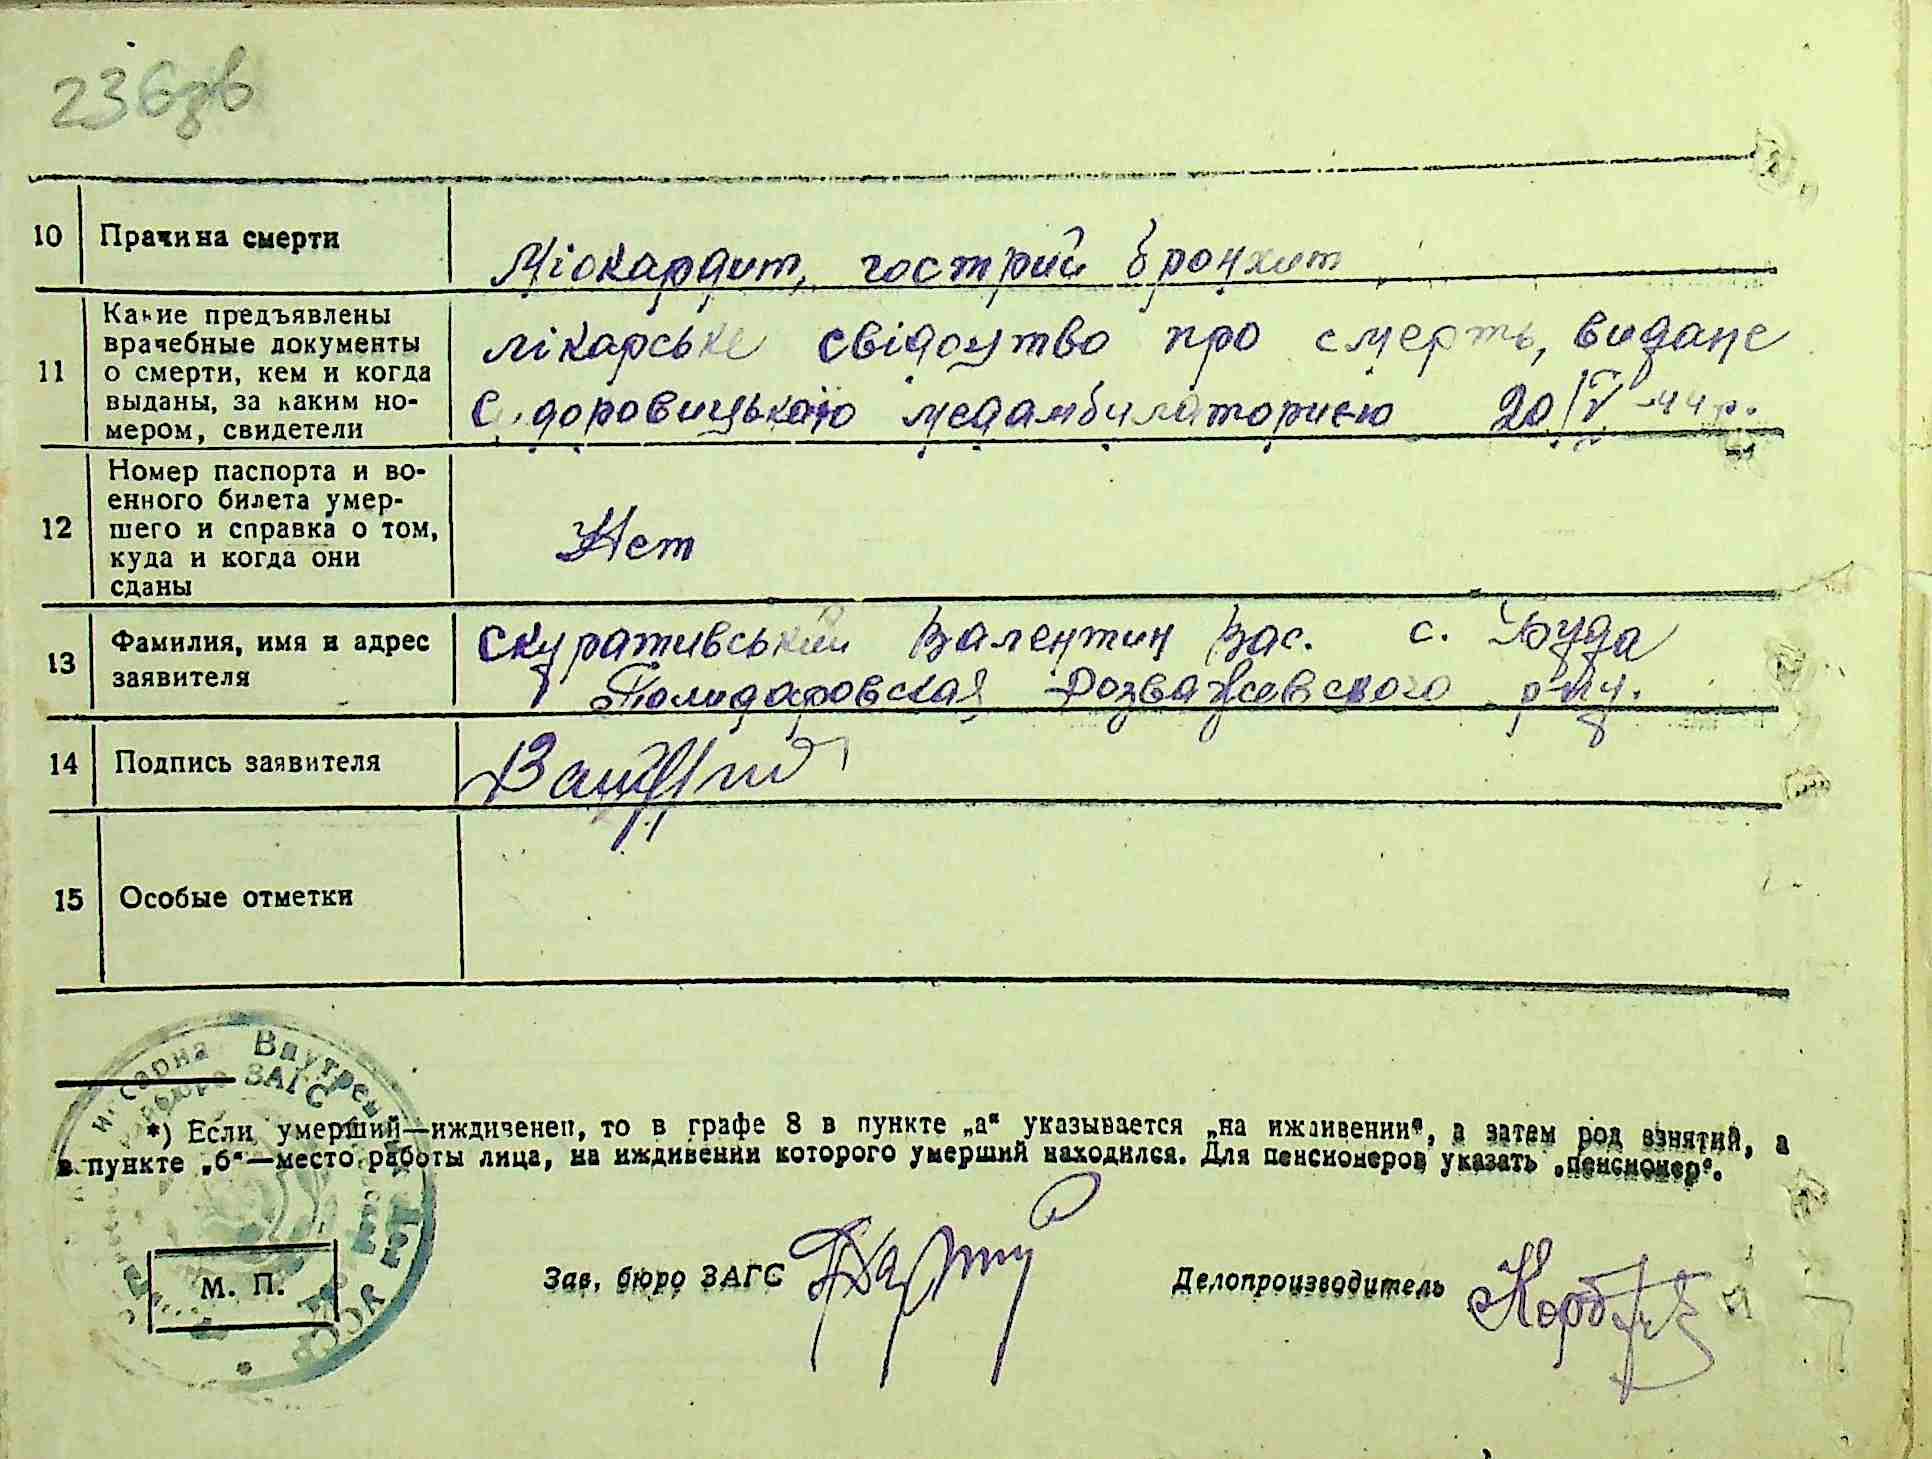 236зв
10 Причина смерти
Міокардит, гострий бронхит
11 Какие предъявлены
врачебные документы
о смерти, кем и когда
выданы, за каким но-
мером, свидетели
лікарське свідоцтво про смерть, видане
Сидоровицькою медамбулаторією 20/IV-44 р.
12 Номер паспорта и во-
енного билета умер-
шего и справка о том,
куда и когда они
сданы
Нет
13 Фамилия, имя и адрес
заявителя
Скуративський Валентин Вас. с. Буда
Полидаровская Розважевского р-ну.
14 Подпись заявителя
15 Особые отметки
Внутрен
ЗАГС
УССР
*) Если умерший—иждивенец, то в графе 8 в пункте „а“ указывается „на иждивении“, а затем род занятий, а
в пункте „б“—место работы лица, на иждивении которого умерший находился. Для пенсионеров указать „пенсионер“.
М. П.
Зав. бюро ЗАГС
Делопроизводитель